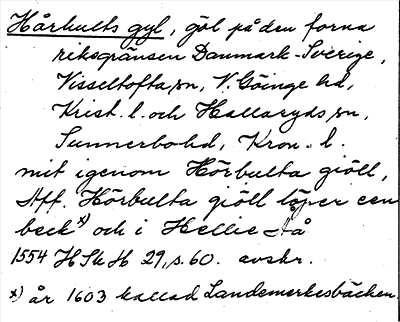 Hårhults gyl, göl på den forna
riksgränsen Danmark-Sverige,
Visseltofta sn, V. Göinge hd,
Krist. l. och Hallaryds sn,
Sunnerbo hd, Kron. l.
mit igenom Hörbulta giöll,
Aff. Hörbulta giöll löper een
beck x) och i Hellie Aå
1554 HSkH 29, s. 60. avskr.
x) år 1603 kallad Landemerkesbäcken